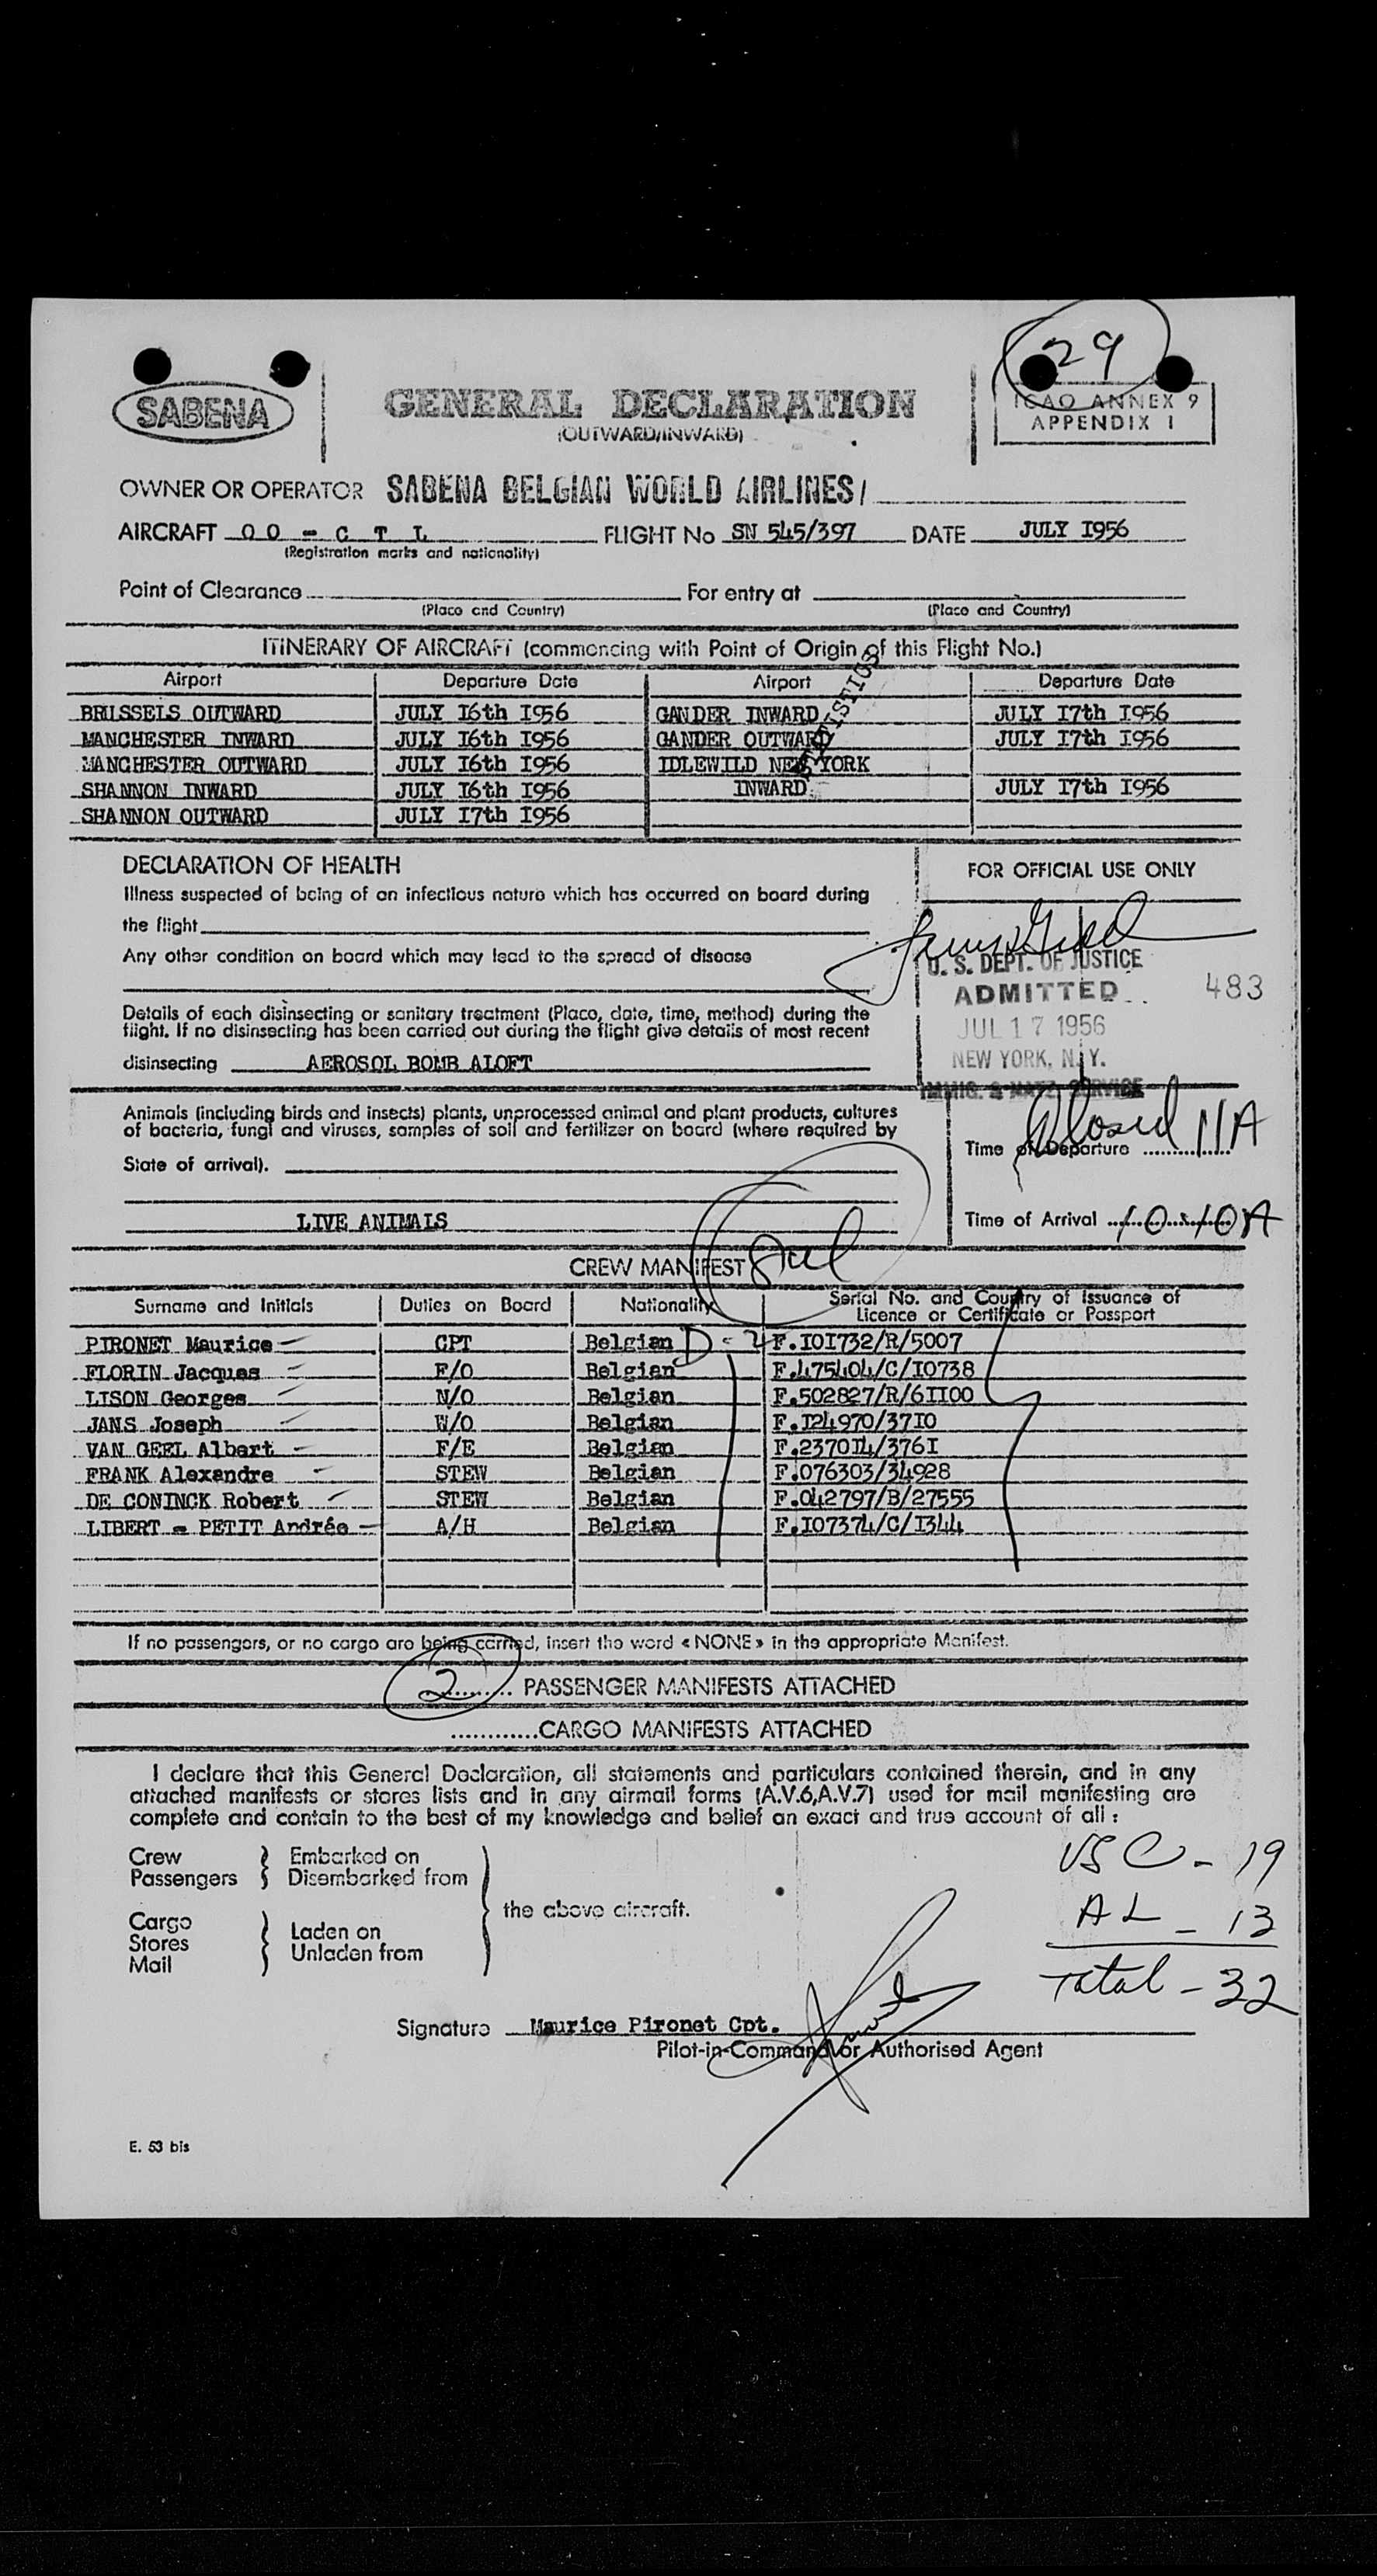 29
SABENA
GENERAL DECLARATION
(OUTWARD/INWARD)
ICAO ANNEX 9
APPENDIX I
OWNER OR OPERATOR SABENA BELGIAN WORLD AIRLINES/
AIRCRAFT OO - C T L FLIGHT No SN 545/397 DATE JULY I956
(Registration marks and nationality)
Point of Clearance For entry at
(Place and Country) (Place and Country)
ITINERARY OF AIRCRAFT (commencing with Point of Origin of this Flight No.)
Airport Departure Date Airport Departure Date
BRUSSELS OUTWARD JULY I6th I956 GANDER INWARD JULY I7th I956
MANCHESTER INWARD JULY I6th I956 GANDER OUTWARD JULY I7th I956
MANCHESTER OUTWARD JULY I6th I956 IDLEWILD NEW YORK
SHANNON INWARD JULY I6th I956 INWARD JULY I7th I956
SHANNON OUTWARD JULY I7th I956
STATISTICS
DECLARATION OF HEALTH
Illness suspected of being of an infectious nature which has occurred on board during
the flight
Any other condition on board which may lead to the spread of disease
Details of each disinsecting or sanitary treatment (Place, date, time, method) during the
flight. If no disinsecting has been carried out during the flight give details of most recent
disinsecting AEROSOL BOMB ALOFT
FOR OFFICIAL USE ONLY
U. S. DEPT. OF JUSTICE
ADMITTED
483
JUL 17 1956
NEW YORK, N.Y.
IMMIG. & NATZ. SERVICE
Animals (including birds and insects) plants, unprocessed animal and plant products, cultures
of bacteria, fungi and viruses, samples of soil and fertilizer on board (where required by
State of arrival).
LIVE ANIMALS
Time of Departure Closed 11A
Time of Arrival 10:10A
CREW MANIFEST
Surname and Initials Duties on Board Nationality Serial No. and Country of Issuance of
Licence or Certificate or Passport
PIRONET Maurice CPT Belgian F.I0I732/R/5007
FLORIN Jacques F/O Belgian F.475404/C/I0738
LISON Georges N/O Belgian F.502827/R/6II00
JANS Joseph W/O Belgian F.I24970/37I0
VAN GEEL Albert F/E Belgian F.2370I4/376I
FRANK Alexandre STEW Belgian F.076303/34928
DE CONINCK Robert STEW Belgian F.042797/B/27555
LIBERT = PETIT Andrée A/H Belgian F.I07374/C/I344
If no passengers, or no cargo are being carried, insert the word « NONE » in the appropriate Manifest.
2 PASSENGER MANIFESTS ATTACHED
CARGO MANIFESTS ATTACHED
I declare that this General Declaration, all statements and particulars contained therein, and in any
attached manifests or stores lists and in any airmail forms (A.V.6,A.V.7) used for mail manifesting are
complete and contain to the best of my knowledge and belief an exact and true account of all :
Crew Embarked on
Passengers Disembarked from
the above aircraft.
Cargo
Stores Laden on
Mail Unladen from
USC - 19
AL - 13
Total - 32
Signature Maurice Pironet Cpt.
Pilot-in-Command or Authorised Agent
E. 53 bis